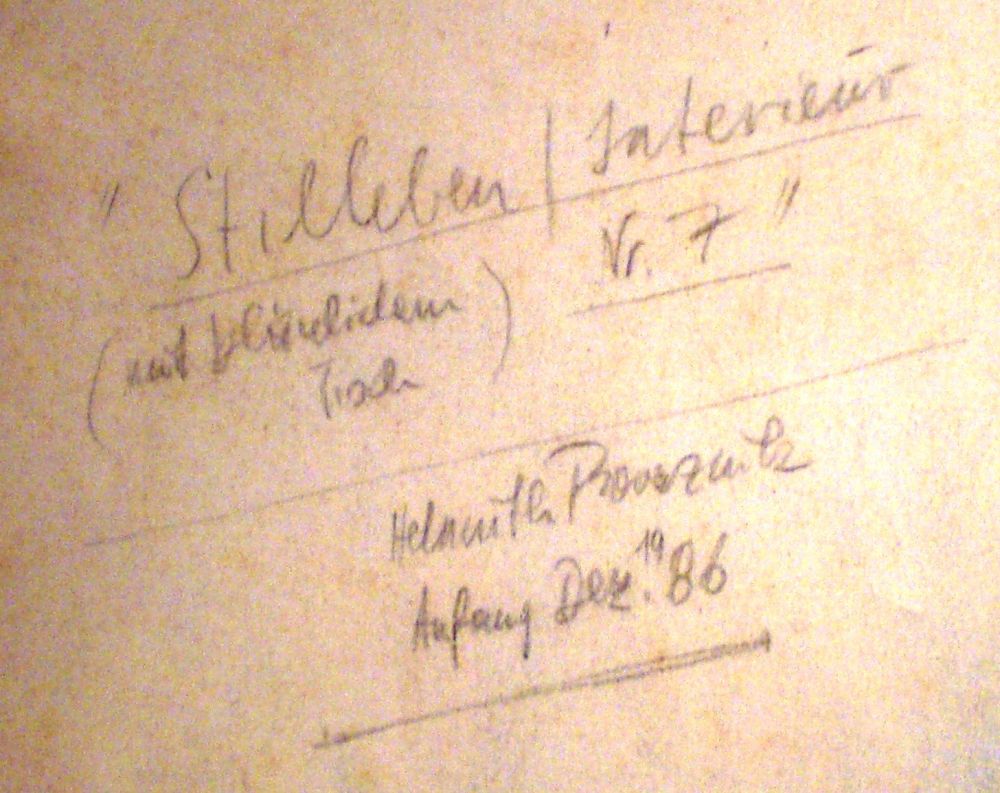 " Stilleben / Interieur
Nr. 7 "
(mit bläulichem
Tisch)
Helmuth
Anfang Dez. 1986